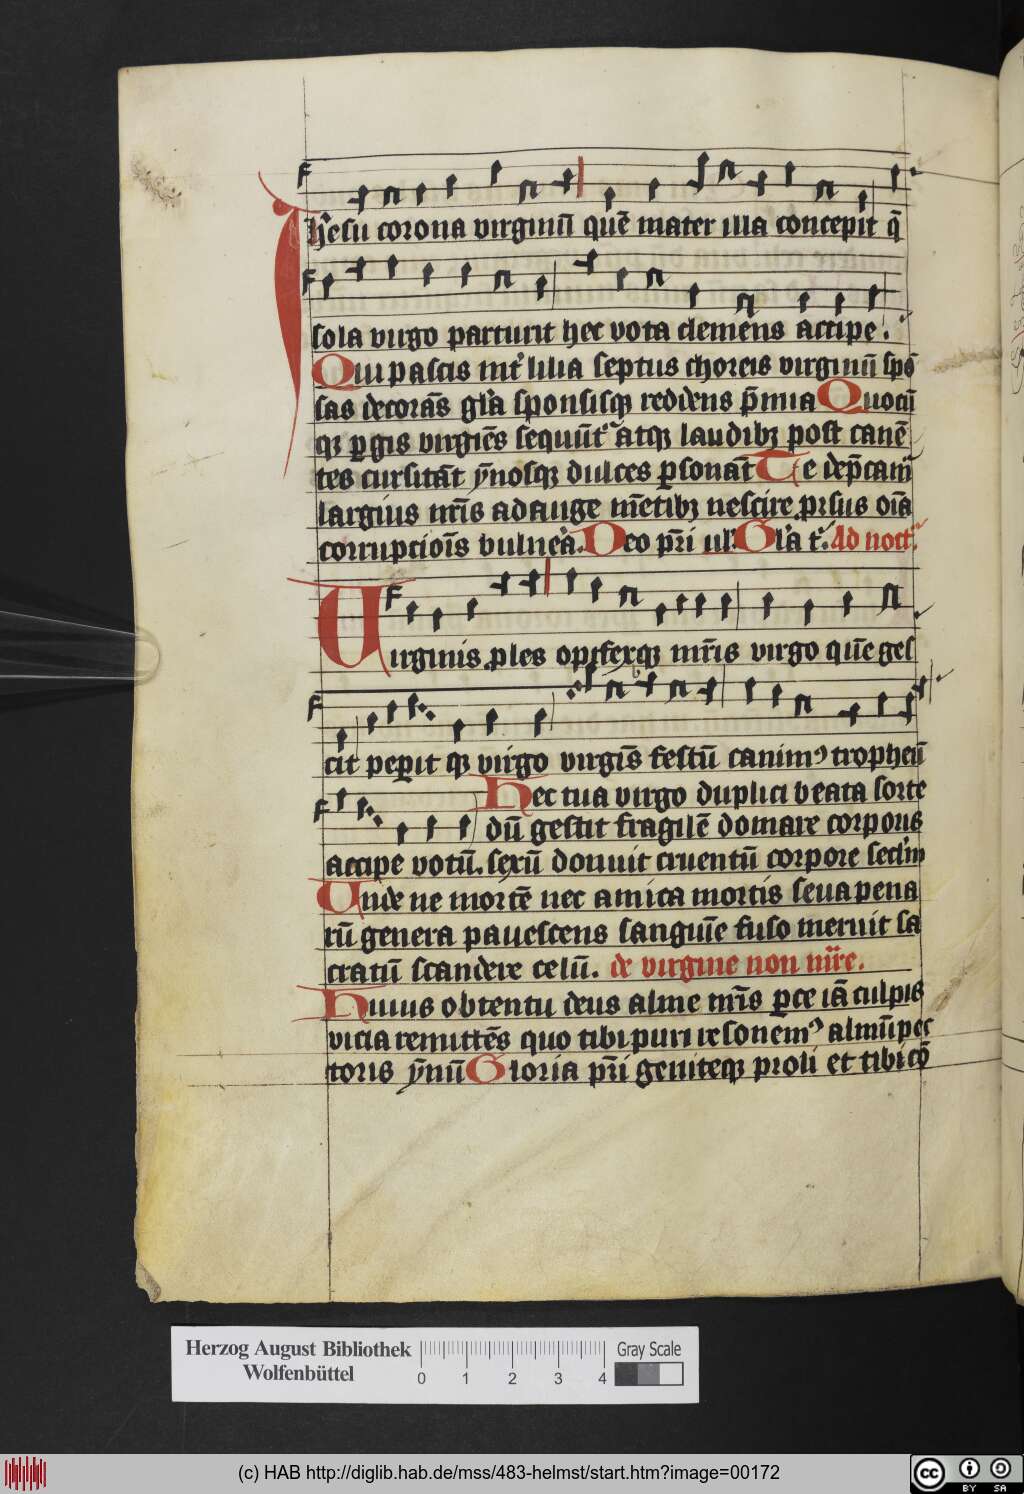 Ih̄esu corona virginū quē mater illa concepit q̄
sola virgo parturit hec vota clemens accipe.
Qui pascis int̉ lilia septus choreis virginū spō
sas decorās gl̉a sponsisq̄ reddens p̄mia Quocū
q̄ pgis virgiēs sequūt̉ atq̄ laudibꝫ post canē
tes cursitāt ȳnosq̄ dulces psonāt Te dep̄camͬ
largius nr̄is adauge mētibꝫ nescire prsus oīa
corruptiōis vulnēa. Deo pr̄i ul̉. Gl̉a t̉. Ad noct̉.
Virginis ples opifexq̄ mr̄is virgo quē ges
cit pepit q̄ virgo virgīs festū canimꝰ tropheū
Hec tua virgo duplici beata sorte
dū gestit fragilē domare corporis
accipe votū. sexū domuit cruentū corpore sec̉lm
Unde ne mortē nec amica mortis seua pena
rū genera pauescens sanguīe fuso meruit sa
cratū scandere celū. de virgine non mr̄e.
Huius obtentu deus alme nr̄is pce iā culpis
vicia remittēs quo tibi puri resonemꝰ almū pec
toris ȳnū Gloria pr̄i geniteq̄ proli et tibi cō
Herzog August Bibliothek
Wolfenbüttel
0 1 2 3 4
Gray Scale
(c) HAB http://diglib.hab.de/mss/483-helmst/start.htm?image=00172
cc BY SA